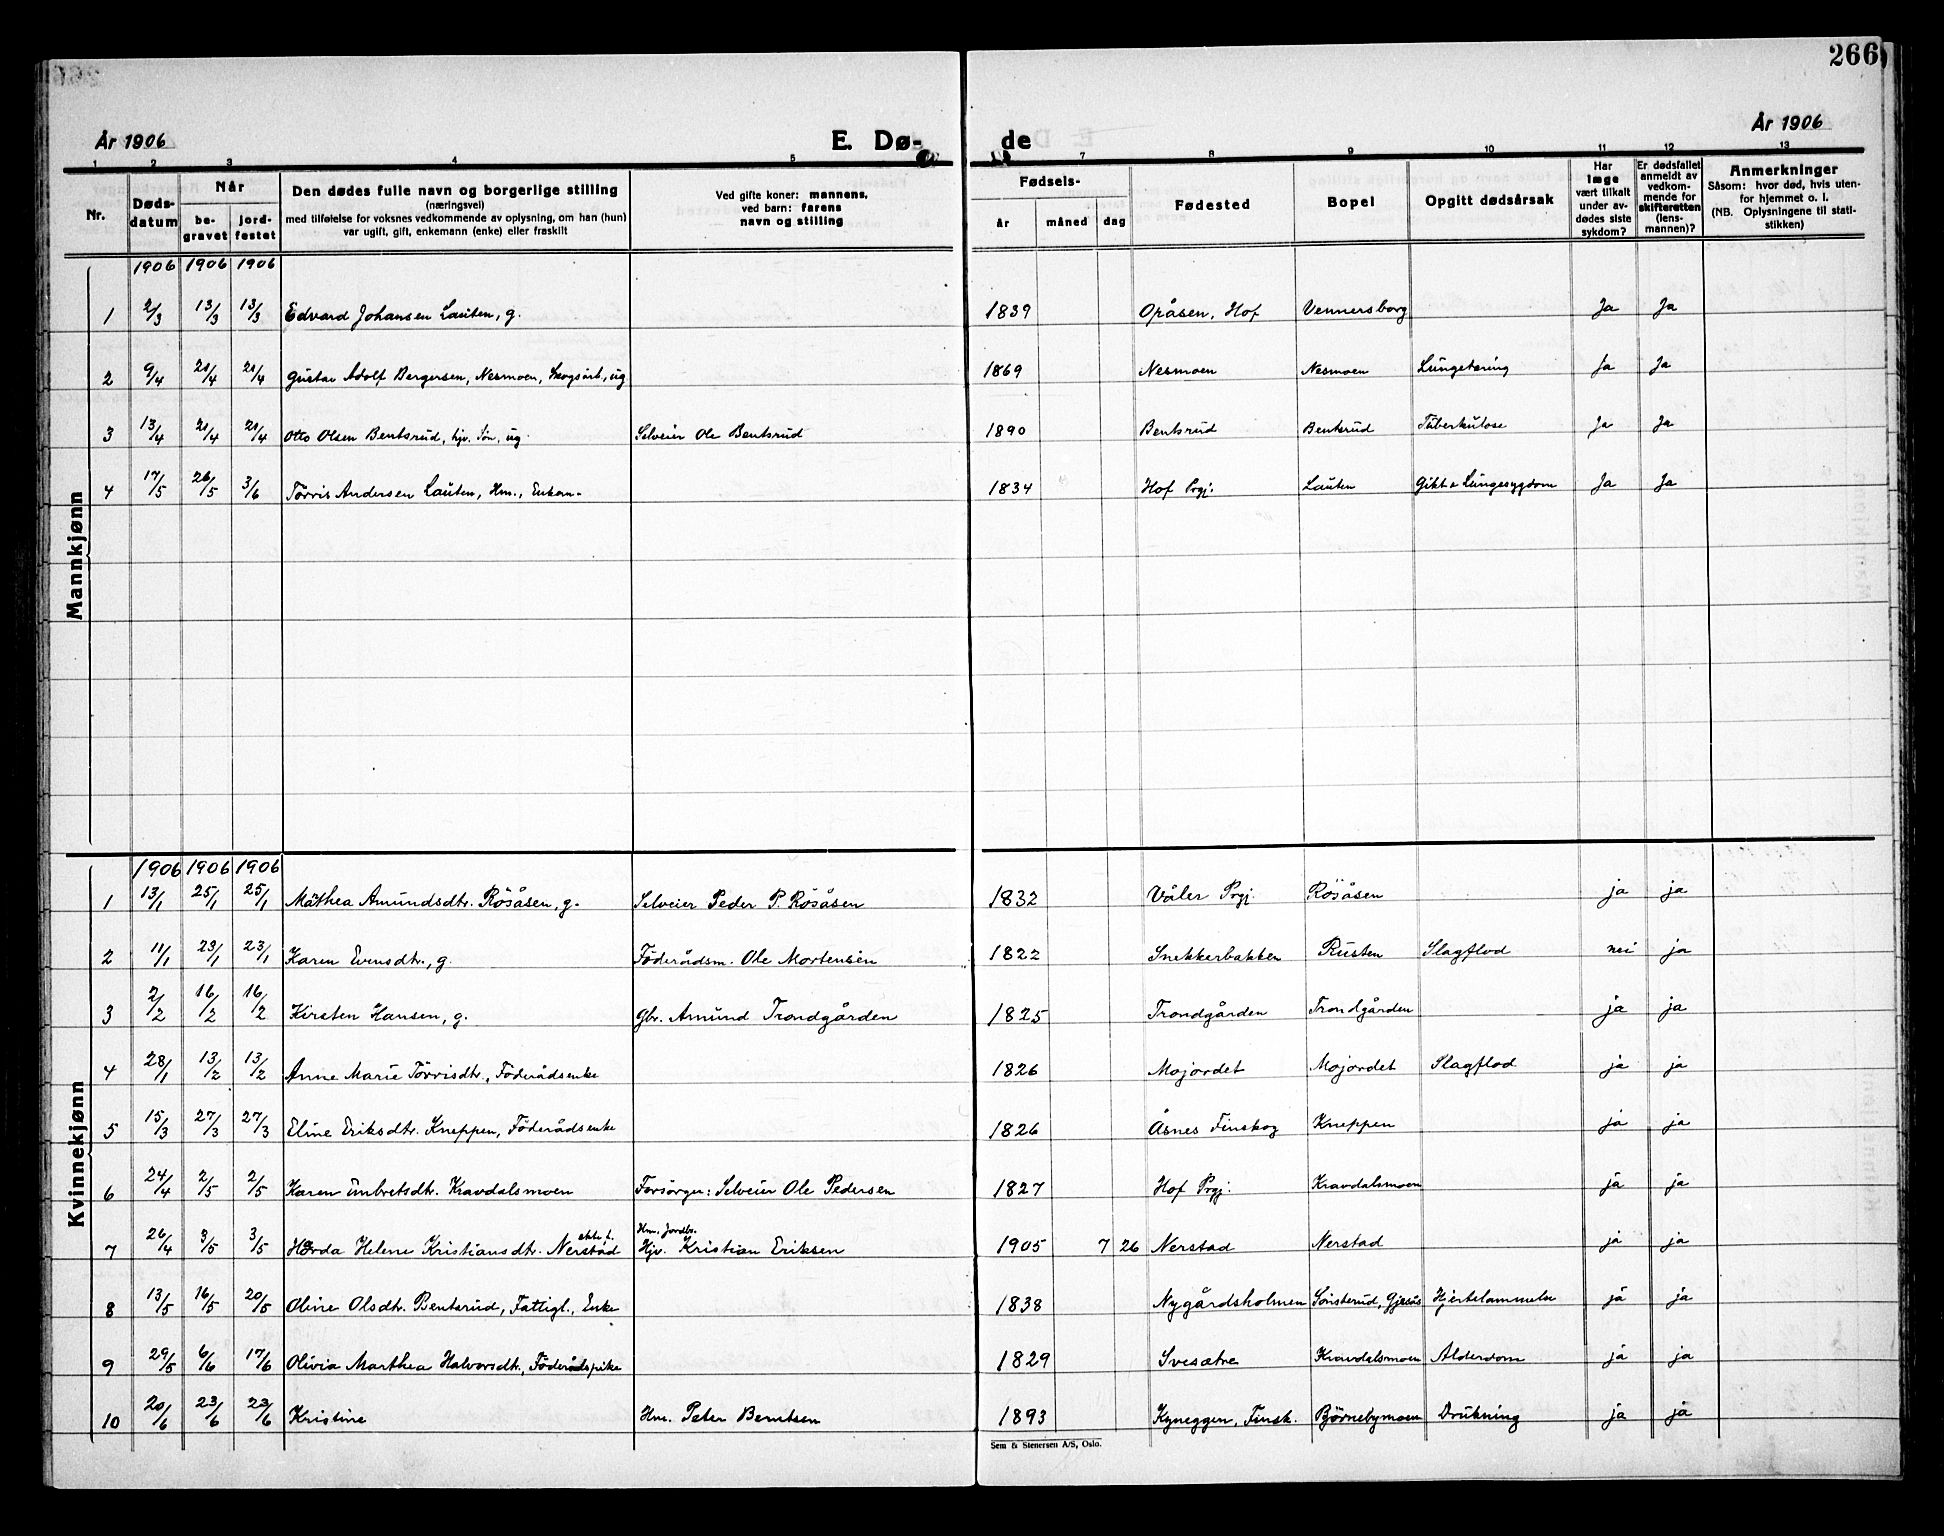 266
År 1906
E. Dø-
de
År 1906
1 2 3 4 5 7 8 9 10 11 12 13
Nr.
Døds-
datum
Når
be-
gravet
jord-
festet
Den dødes fulle navn og borgerlige stilling
(næringsvei)
med tilføielse for voksnes vedkommende av oplysning, om han (hun)
var ugift, gift, enkemann (enke) eller fraskilt
Ved gifte koner: mannens,
ved barn: farens
navn og stilling
Fødsels-
år måned dag
Fødested
Bopel
Opgitt dødsårsak
Har
læge
vært tilkalt
under av-
dødes siste
sykdom?
Er dødsfallet
anmeldt av
vedkom-
mende for
skifteretten
(lens-
mannen)?
Anmerkninger
Såsom: hvor død, hvis uten-
for hjemmet o. l.
(NB. Oplysningene til stati-
stikken)
Mannkjønn
1906 1906 1906
1 2/3 13/3 13/3 Edvard Johansen Lauten, g. 1839 Opåsen, Hof Vennersborg Ja Ja
2 9/4 21/4 21/4 Gustav Adolf Bergersen, Nesmoen, Skogsarb., ug 1869 Nesmoen Nesmoen Lungetæring Ja Ja
3 13/4 21/4 21/4 Otto Olsen Bentsrud, hjv. Søn, ug. Selveier Ole Bentsrud 1890 Bentsrud Bentsrud Tuberkulose Ja Ja
4 17/5 26/5 3/6 Tørris Andersen Lauten, Hm., Enkem. 1834 Hof Prgj. Lauten Gikt & Lungesygdom Ja Ja
Kvinnekjønn
1906 1906 1906
1 13/1 25/1 25/1 Mathea Amundsdtr. Røsåsen, g. Selveier Peder P. Røsåsen 1832 Våler Prgj. Røsåsen ja ja
2 11/1 23/1 23/1 Karen Evensdtr., g. Føderådsm. Ole Mortensen 1822 Snekkerbakken Rusten Slagflod nei ja
3 2/2 16/2 16/2 Kirsten Hansen, g. Gbr. Amund Trondgården 1825 Trondgården Trondgården ja ja
4 28/1 13/2 13/2 Anne Marie Tørrisdtr., Føderådsenke 1826 Mojordet Mojordet Slagflod ja ja
5 15/3 27/3 27/3 Eline Eriksdtr. Kneppen, Føderådsenke 1826 Åsnes Finskog Kneppen ja ja
6 24/4 2/5 2/5 Karen Embretsdtr. Kravdalsmoen Forsørger: Selveier Ole Pedersen 1827 Hof Prgj. Kravdalsmoen ja ja
7 26/4 3/5 3/5 Helene Kristiansdtr. Nerstad ekte f. Hm. Jordbr. Hjv. Kristian Eriksen 1905 7 26 Nerstad Nerstad ja ja
8 13/5 16/5 20/5 Oline Olsdtr. Bentsrud, Fattigl., Enke 1838 Nygårdsholmen Sønsterud, Gjesås Hjertelammelse ja ja
9 29/5 6/6 17/6 Olivia Marthea Halvorsdtr., Føderådspike 1829 Svesætre Kravdalsmoen Alderdom ja ja
10 20/6 23/6 23/6 Kristine Hm. Peter Berntsen 1893 Kyneggen, Finsk. Bjørnebymoen Drukning ja ja
Sem & Stenersen A/S, Oslo.